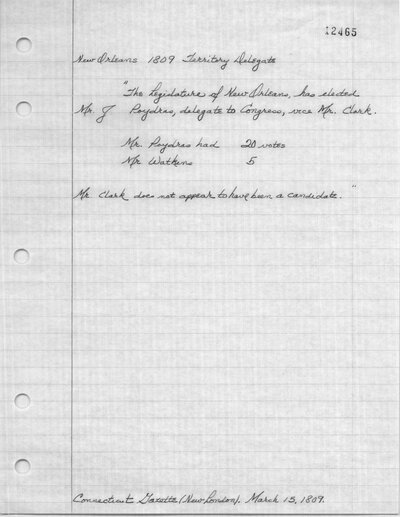 12465
New Orleans 1809 Territory Delegate
"The Legislature of New Orleans, has elected
Mr. J Poydras, delegate to Congress, vice Mr. Clark.
Mr. Poydras had 20 votes
Mr Watkins 5
Mr. Clark does not appear to have been a candidate."
Connecticut Gazette (New London). March 15, 1809.